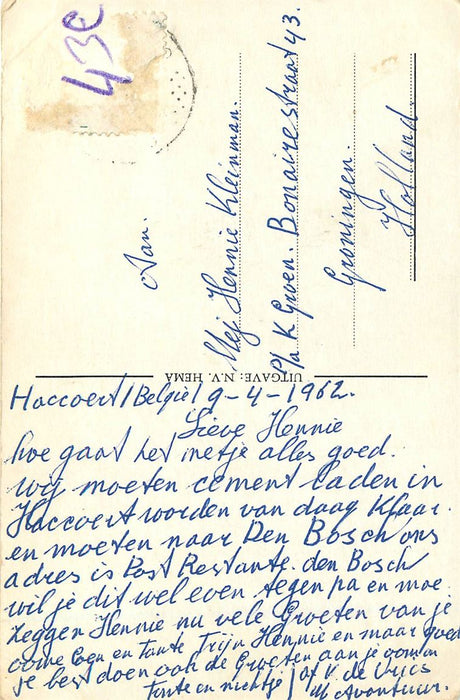 43c
Aan.
Mej Hennie Kleinman.
P/a K Groen. Bonairestraat 43.
Groningen.
Holland.
UITGAVE: N.V. HEMA
Haccoert / Belgie / 9-4-1962.
Lieve Hennie
hoe gaat het met je alles goed.
wij moeten cement laden in
Haccoert worden van daag klaar.
en moeten naar Den Bosch ons
adres is Post Restante. den Bosch
wil je dit wel even tegen pa en moe
zeggen Hennie nu vele Groeten van je
oome Coen en tante Trijn Hennie en maar goed
je best doen ook de Groeten aan je oom en
tante en nichtje K. de Vries
M.S Avontuur.